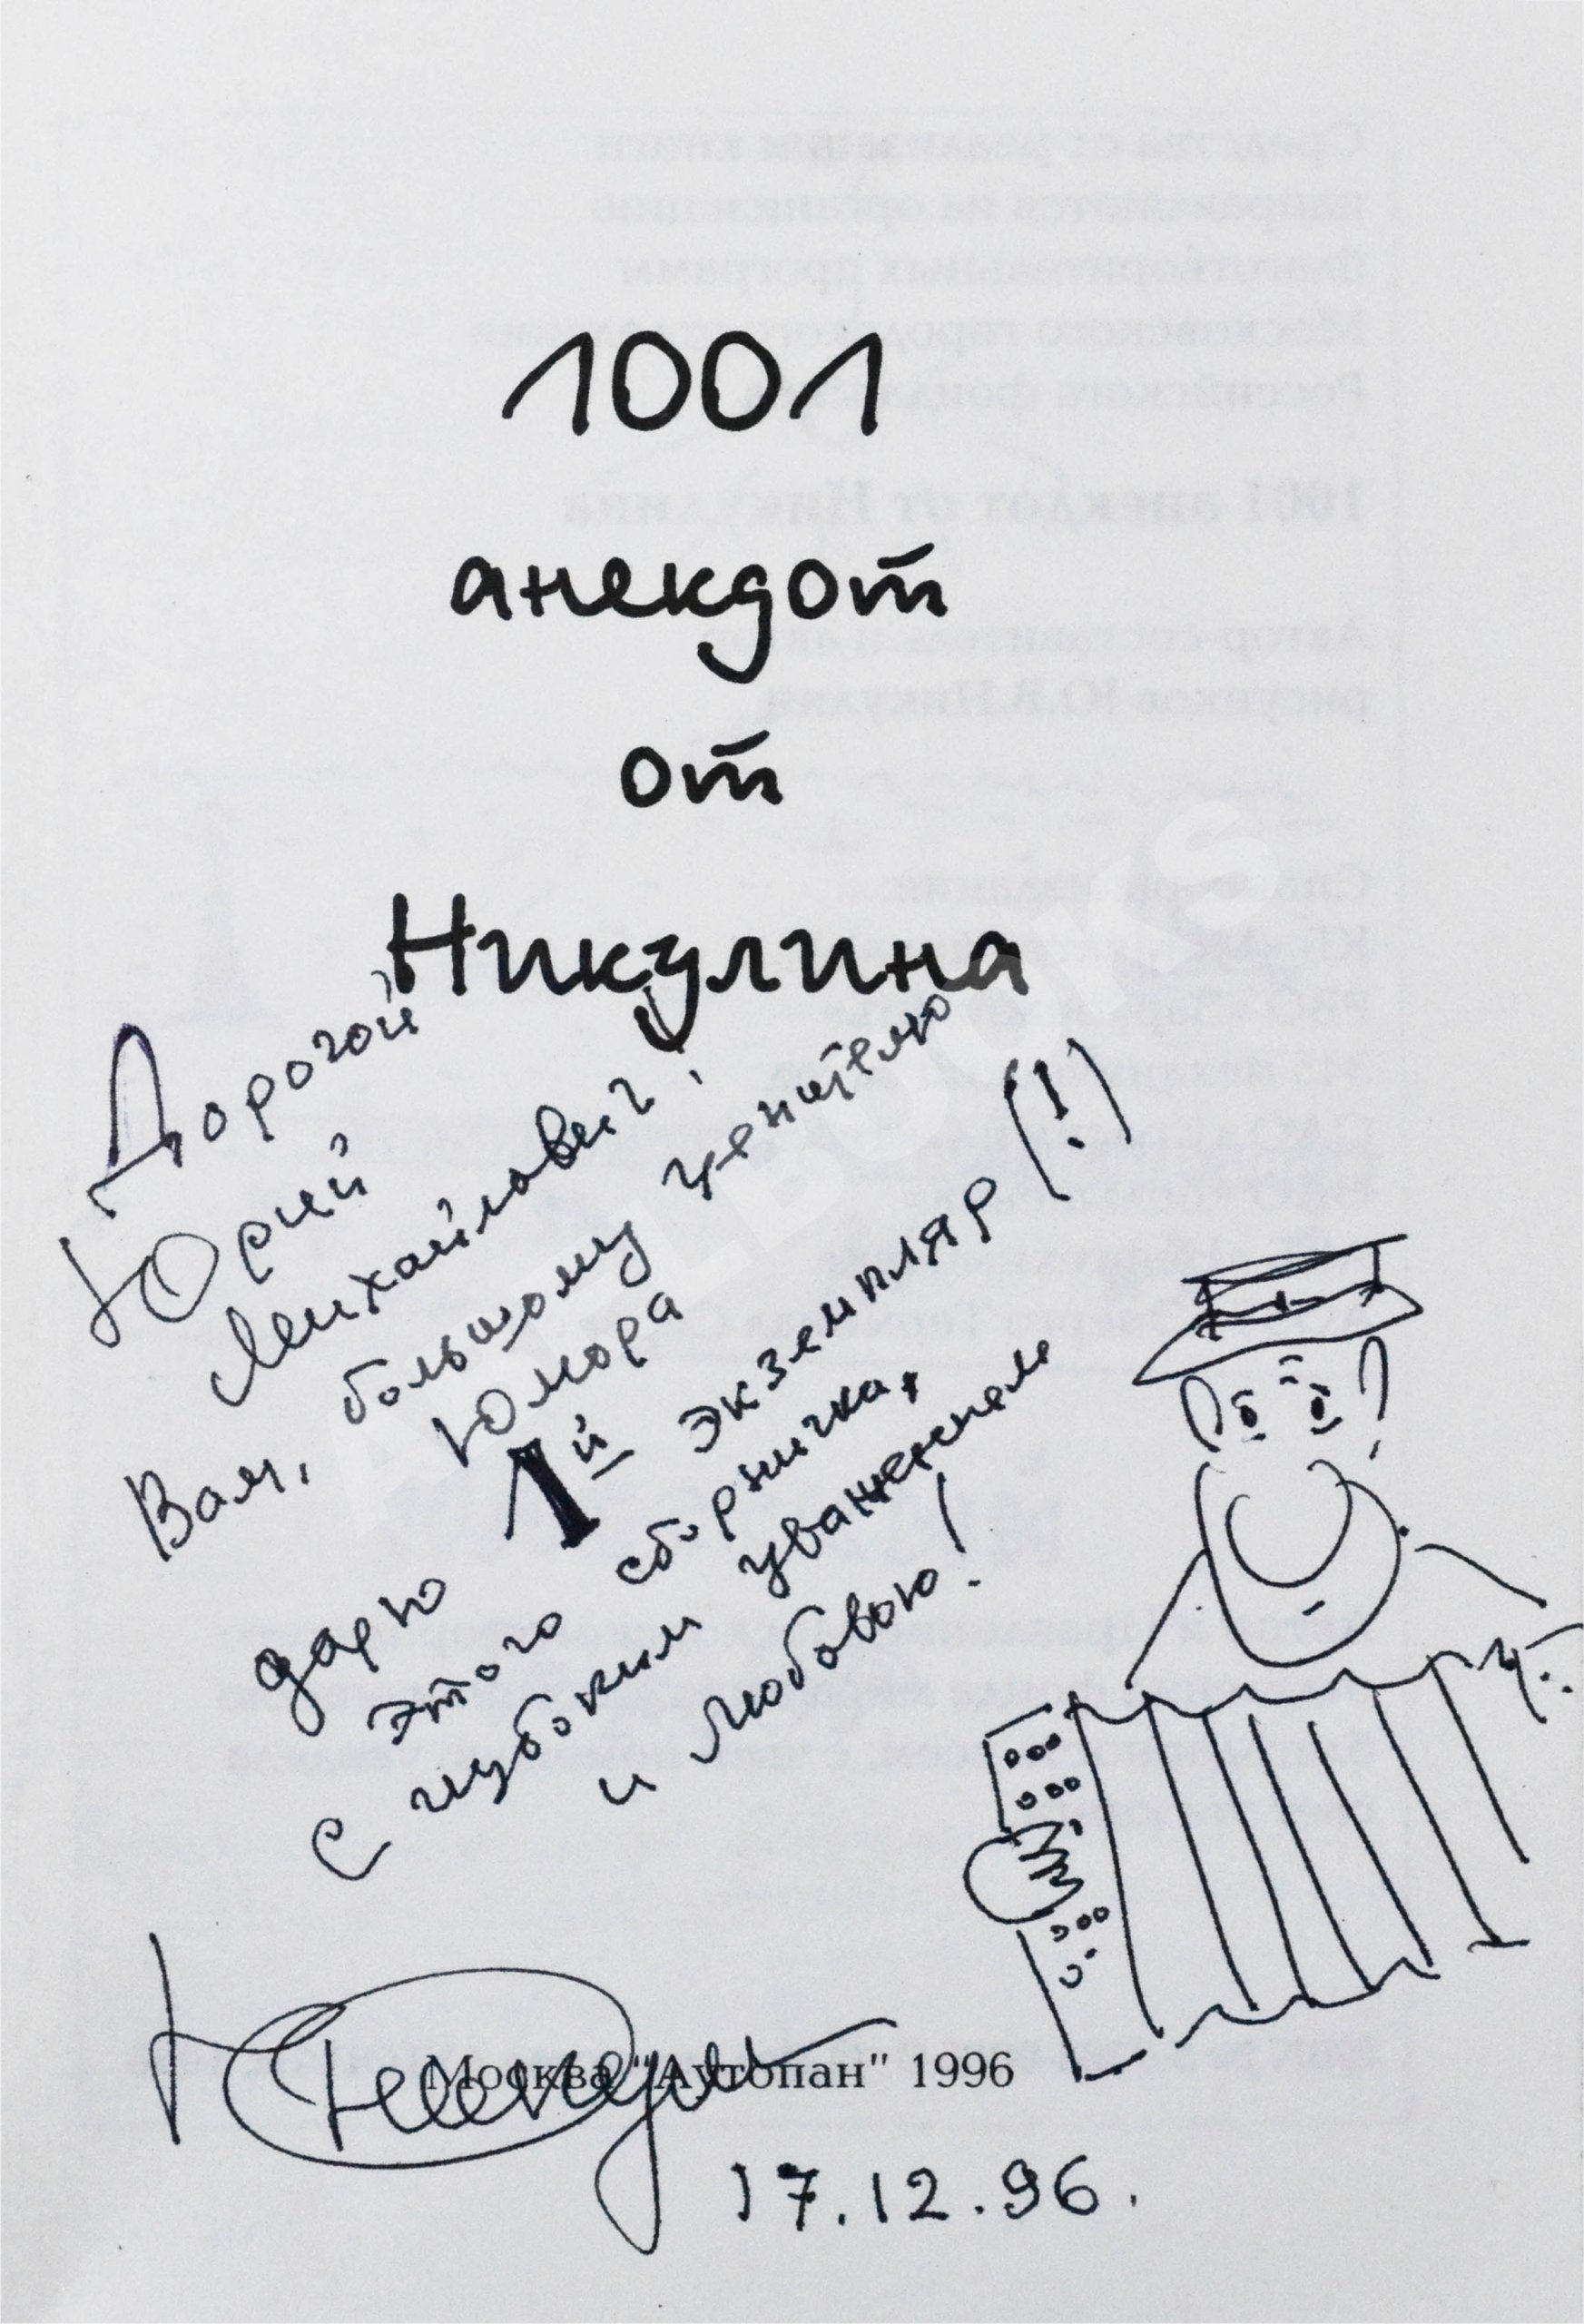 1001
анекдот
от
Никулина
Дорогой
Юрий
Михайлович!
Вам, большому ценителю
Юмора
дарю 1й экземпляр (!)
этого сборничка,
с глубоким уважением
и любовью!
Москва "Аутопан" 1996
17.12.96.